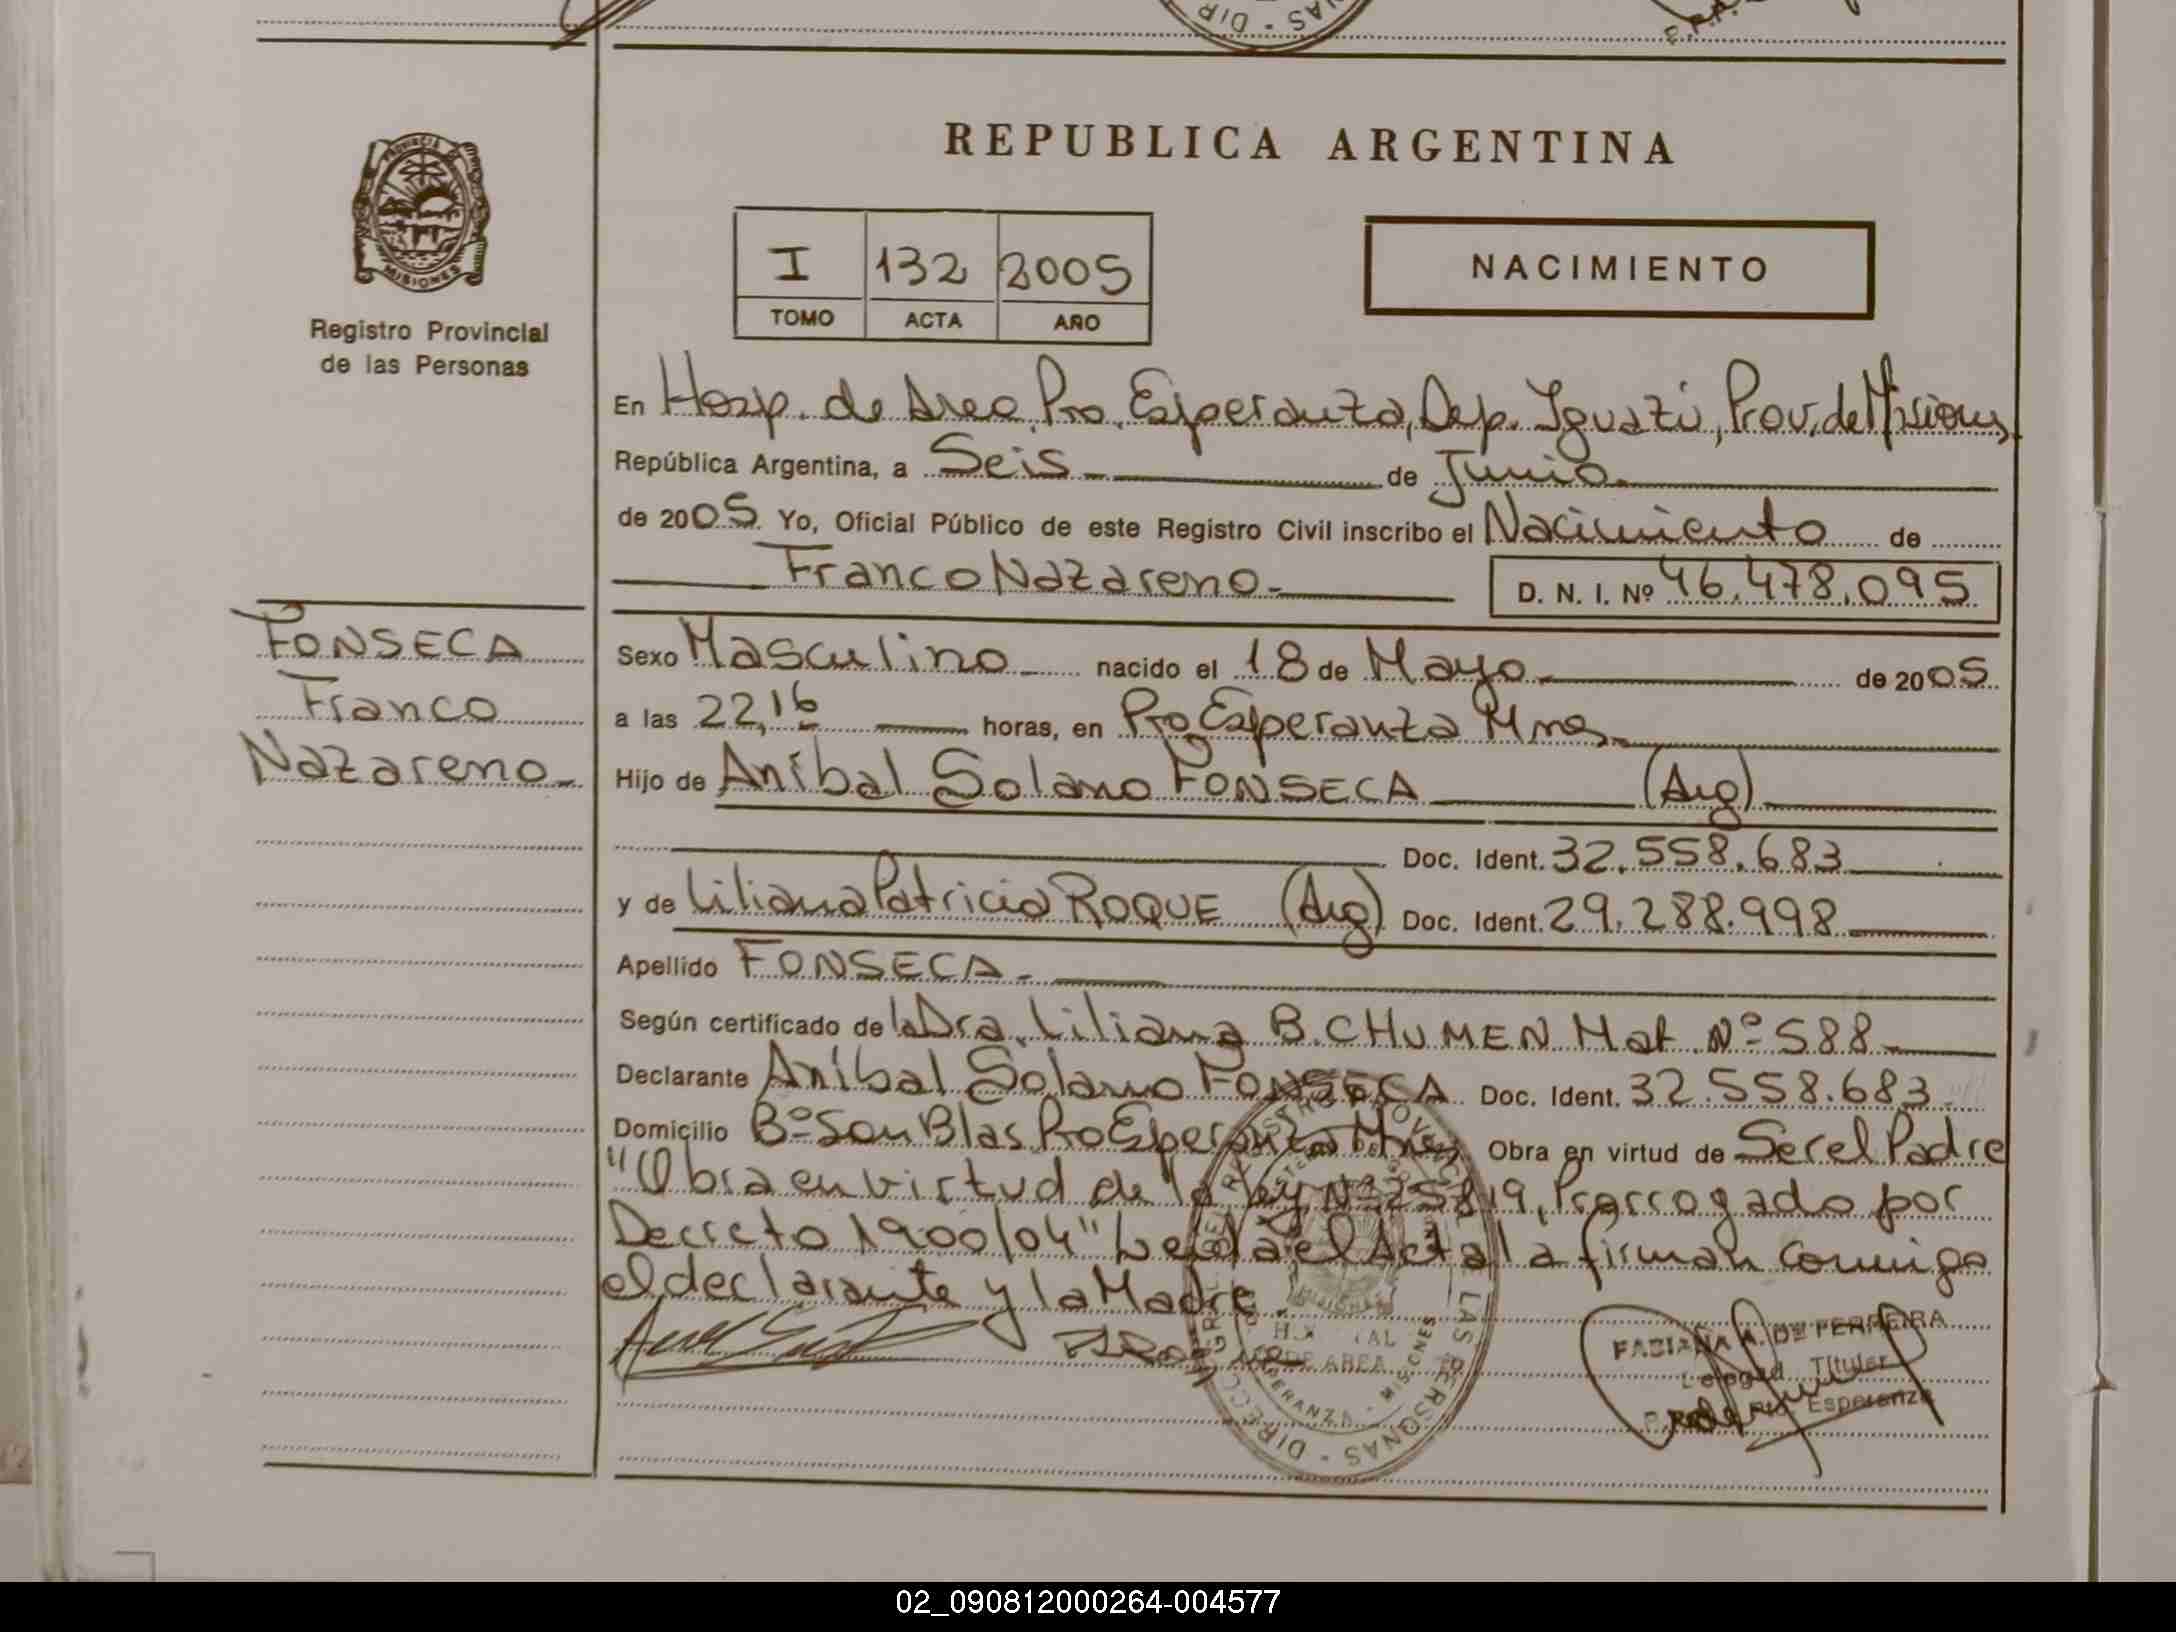 REPUBLICA ARGENTINA
PROVINCIA DE
MISIONES
Registro Provincial
de las Personas
I 132 2005
TOMO ACTA AÑO
NACIMIENTO
En Hosp. de Area Pto. Esperanza, Dep. Iguazú, Prov. de Misiones,
República Argentina, a Seis de Junio
de 2005 Yo, Oficial Público de este Registro Civil inscribo el Nacimiento de
Franco Nazareno
D. N. I. Nº 46.478.095
FONSECA
Franco
Nazareno
Sexo Masculino nacido el 18 de Mayo de 2005
a las 22,16 horas, en Pto Esperanza Mnes.
Hijo de Aníbal Solano FONSECA (Arg)
Doc. Ident. 32.558.683
y de Liliana Patricia ROQUE (Arg) Doc. Ident. 29.288.998
Apellido FONSECA.
Según certificado de la Dra. Liliana B. CHUMEN Mat. Nº 588
Declarante Aníbal Solano FONSECA Doc. Ident. 32.558.683
Domicilio Bº San Blas Pto Esperanza Mnes Obra en virtud de Ser el Padre
"Obra en virtud de la ley Nº 25819, Prorrogado por
Decreto 1900/04" Leida el Acta la firman conmigo
el declarante y la Madre.
FABIANA A. De FERREIRA
Titular
Pto Esperanza
02_090812000264-004577